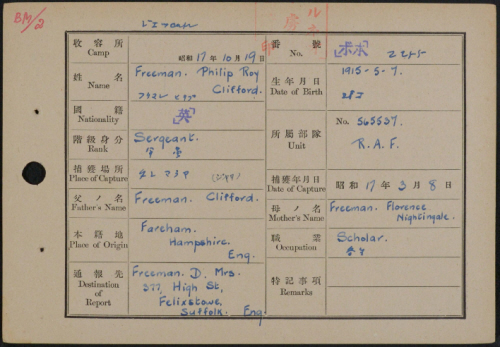 BM/2
収容所
Camp
昭和 17 年 10 月 19 日
番號
No.
姓名
Name
Freeman. Philip Roy
Clifford.
生年月日
Date of Birth
1915-5-7.
國籍
Nationality
英
階級身分
Rank
Sergeant.
所屬部隊
Unit
No. 565537.
R.A.F.
捕獲場所
Place of Capture
(ジャワ)
捕獲年月日
Date of Capture
昭和 17 年 3 月 8 日
父ノ名
Father's Name
Freeman. Clifford.
母ノ名
Mother's Name
Freeman. Florence
Nightingale.
本籍地
Place of Origin
Fareham.
Hampshire.
Eng.
職業
Occupation
Scholar.
通報先
Destination of Report
Freeman. D. Mrs.
377, High St,
Felixstowe,
Suffolk. Eng.
特記事項
Remarks